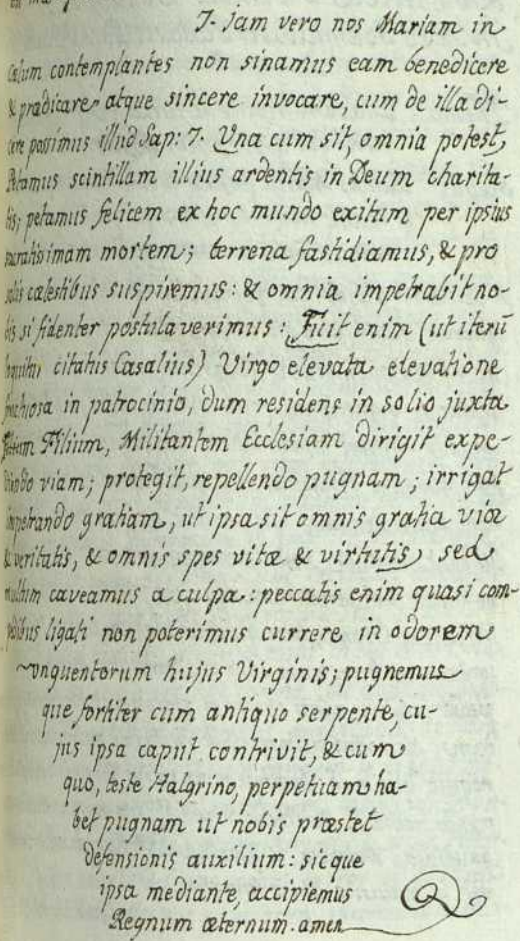 7. Jam vero nos Mariam in
Cœlum contemplantes non sinamus eam benedicere
& prædicare atque sincere invocare, cum de illa di-
cere possimus illud Sap: 7. Una cum sit, omnia potest,
Petamus scintillam illius ardentis in Deum charita-
tis; petamus felicem ex hoc mundo exitum per ipsius
sacratissimam mortem; terrena fastidiamus, & pro
solis cœlestibus suspiremus: & omnia impetrabit no-
bis si fidenter postulaverimus: Fuit enim (ut iterū
loquitur citatus Casalius) Virgo elevata elevatione
in patrocinio, dum residens in solio juxta
Filium, Militantem Ecclesiam dirigit expe-
diendo viam; protegit, repellendo pugnam; irrigat
impetrando gratiam, ut ipsa sit omnis gratia viæ
& veritatis, & omnis spes vitæ & virtutis, sed
multum caveamus a culpa: peccatis enim quasi com-
pedibus ligati non poterimus currere in odorem
unguentorum hujus Virginis; pugnemus
que fortiter cum antiquo serpente, cu-
jus ipsa caput contrivit, & cum
quo, teste Halgrino, perpetuam ha-
bet pugnam ut nobis præstet
defensionis auxilium: sicque
ipsa mediante, accipiemus
Regnum æternum. amen